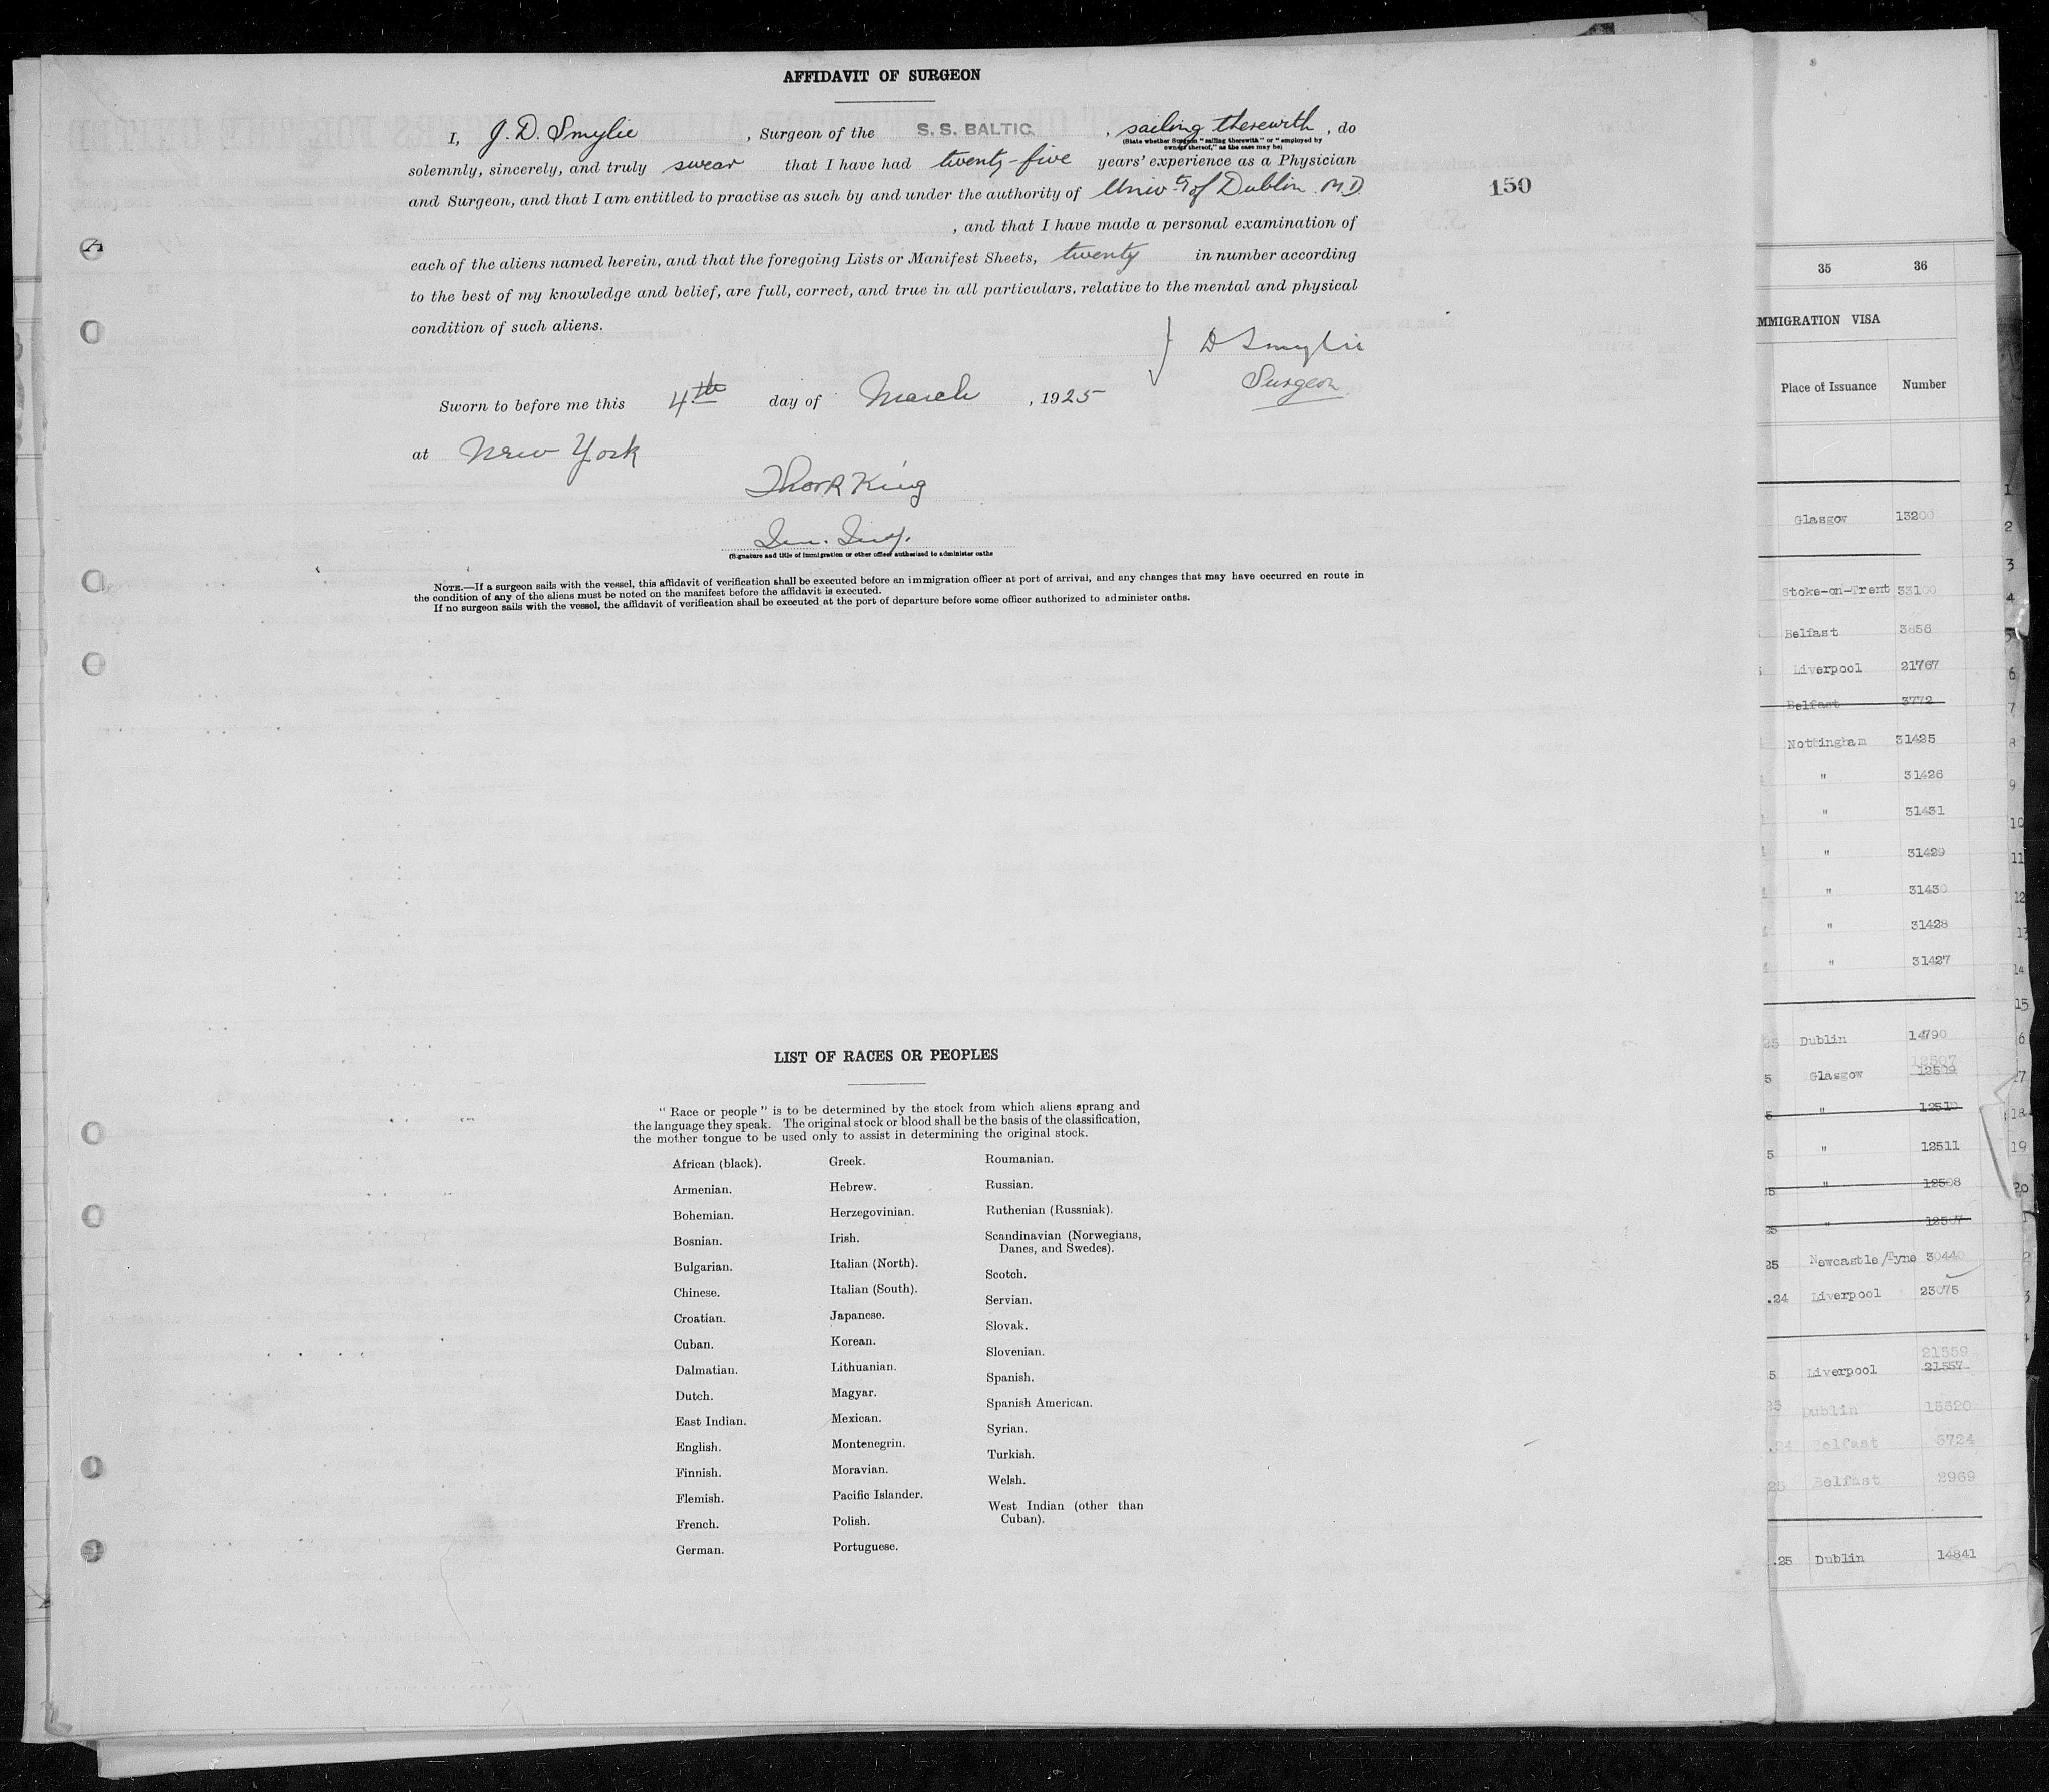 AFFIDAVIT OF SURGEON
I, J. D. Smylie, Surgeon of the S. S. BALTIC, sailing therewith, do
(State whether Surgeon "sailing therewith" or "employed by
owners thereof," as the case may be)
solemnly, sincerely, and truly swear that I have had twenty-five years' experience as a Physician
and Surgeon, and that I am entitled to practise as such by and under the authority of Univ of Dublin M.D.
150
, and that I have made a personal examination of
each of the aliens named herein, and that the foregoing Lists or Manifest Sheets, twenty in number according
to the best of my knowledge and belief, are full, correct, and true in all particulars, relative to the mental and physical
condition of such aliens.
D Smylie
Surgeon
Sworn to before me this 4th day of March, 1925
at New York
King
(Signature and title of immigration or other officer authorized to administer oaths
NOTE.—If a surgeon sails with the vessel, this affidavit of verification shall be executed before an immigration officer at port of arrival, and any changes that may have occurred en route in
the condition of any of the aliens must be noted on the manifest before the affidavit is executed.
If no surgeon sails with the vessel, the affidavit of verification shall be executed at the port of departure before some officer authorized to administer oaths.
LIST OF RACES OR PEOPLES
"Race or people" is to be determined by the stock from which aliens sprang and
the language they speak. The original stock or blood shall be the basis of the classification,
the mother tongue to be used only to assist in determining the original stock.
African (black).
Armenian.
Bohemian.
Bosnian.
Bulgarian.
Chinese.
Croatian.
Cuban.
Dalmatian.
Dutch.
East Indian.
English.
Finnish.
Flemish.
French.
German.
Greek.
Hebrew.
Herzegovinian.
Irish.
Italian (North).
Italian (South).
Japanese.
Korean.
Lithuanian.
Magyar.
Mexican.
Montenegrin.
Moravian.
Pacific Islander.
Polish.
Portuguese.
Roumanian.
Russian.
Ruthenian (Russniak).
Scandinavian (Norwegians,
Danes, and Swedes).
Scotch.
Servian.
Slovak.
Slovenian.
Spanish.
Spanish American.
Syrian.
Turkish.
Welsh.
West Indian (other than
Cuban).
35 36
MMIGRATION VISA
Place of Issuance Number
1
Glasgow 13200 2
3
Stoke-on-Trent 33100 4
Belfast 3856 5
Liverpool 21767 6
Belfast 3772 7
Nottingham 31425 8
" 31426 9
" 31431 10
" 31429 11
" 31430 12
" 31428 13
" 31427 14
15
25 Dublin 14790 6
12507
5 Glasgow 12509 17
5 " 12510 18
5 " 12511 19
25 " 12508 20
25 " 12507 1
25 Newcastle/Tyne 30440 2
.24 Liverpool 23075 3
21559
5 Liverpool 21557
25 Dublin 15620
.24 Belfast 5724
25 Belfast 2969
.25 Dublin 14841